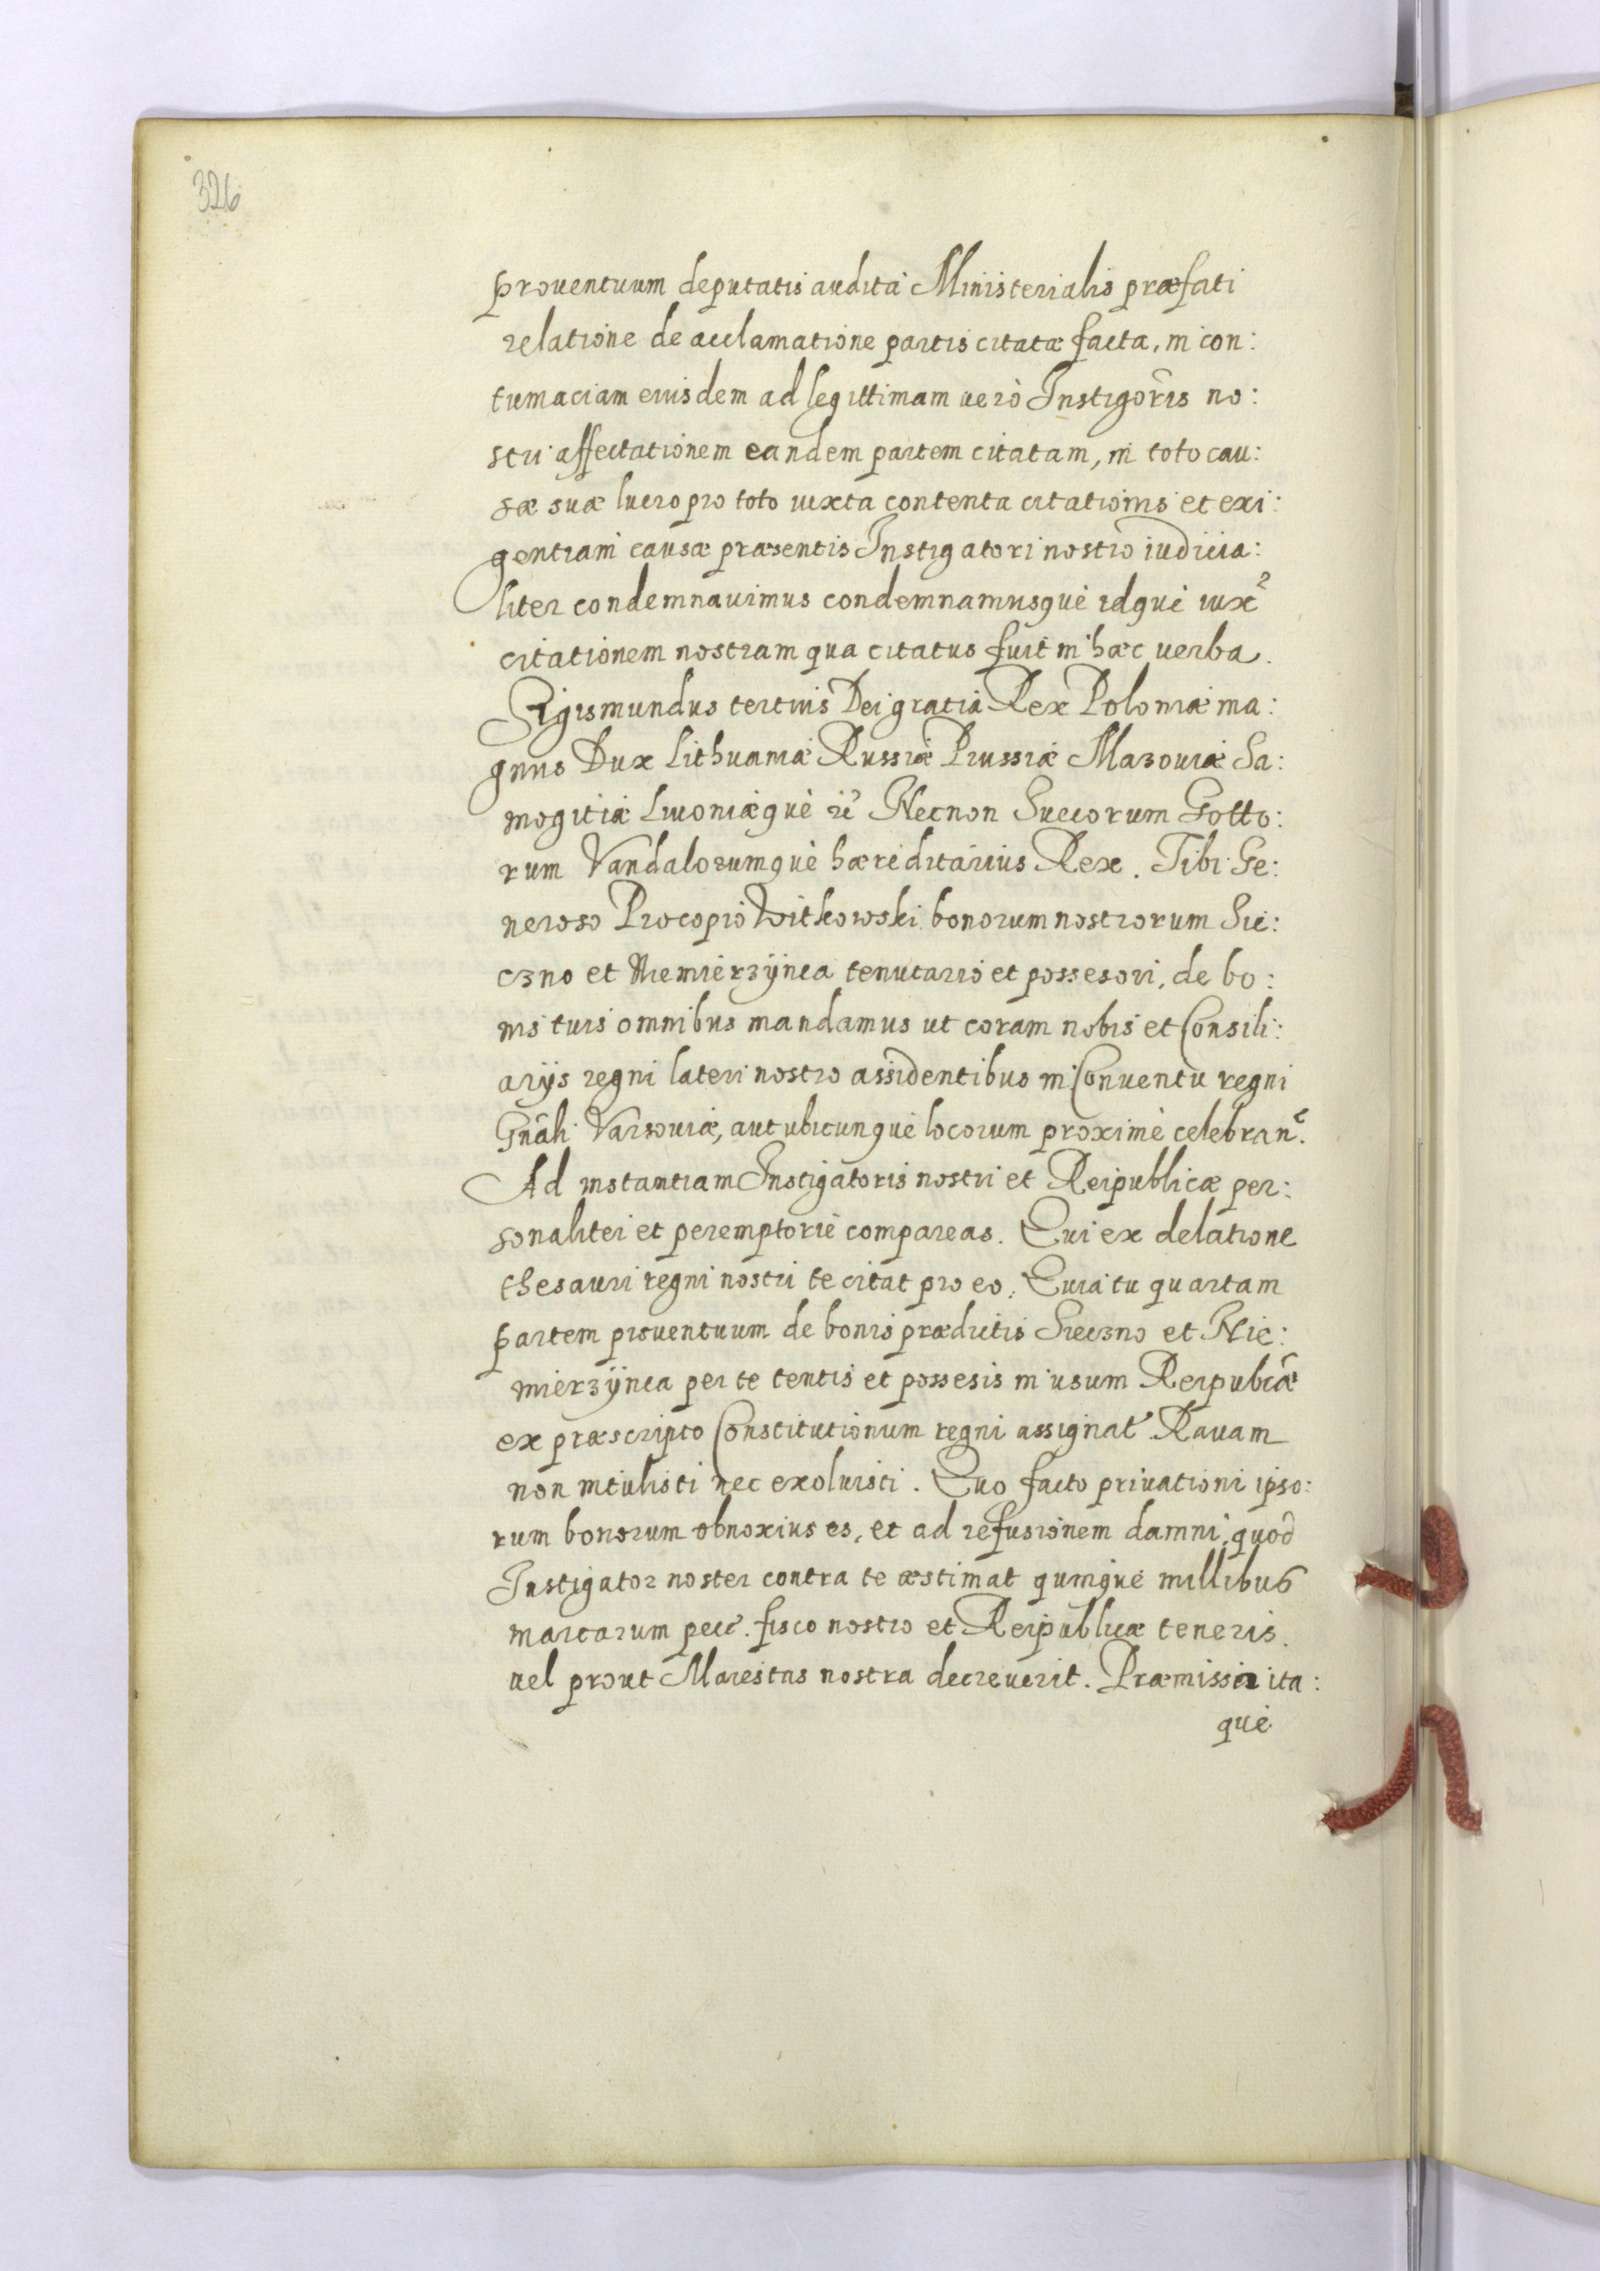 326
proventuum deputatis audita Ministerialis præfati
relatione de acclamatione partis citatæ facta, in con:
tumaciam eiusdem ad legittimam verò Instigoris no:
stri affectationem eandem partem citatam, in toto cau:
sæ suæ lucro pro toto iuxta contenta citationis et exi:
gentiam causæ præsentis Instigatori nostro iudicia:
liter condemnavimus condemnamusquè idquè iuxt
citationem nostram qua citatus fuit in hæc verba.
Sigismundus tertius Dei gratia Rex Poloniæ ma:
gnus Dux Lithuaniæ Russiæ Prussiæ Mazoviæ Sa:
mogitiæ Livoniæquè &c Necnon Suecorum Gotto:
rum Vandalorumquè hæreditarius Rex. Tibi Ge:
neroso Procopio Witkowski bonorum nostrorum Sie:
czno et Niemierzÿnca tenutario et possesori, de bo:
nis tuis omnibus mandamus ut coram nobis et Consili:
arÿs regni lateri nostro assidentibus in Conventu regni
Gnãli Varsoviæ, aut ubicunquè locorum proximè celebran.
Ad instantiam Instigatoris nostri et Reipublicæ per:
sonaliter et peremptoriè compareas. Qui ex delatione
thesauri regni nostri te citat pro eo. Quia tu quartam
partem proventuum de bonis prædictis Sieczno et Nie:
mierzÿnca per te tentis et possesis in usum Reipubcæ
ex præscripto Constitutionum regni assignat Ravam
non intulisti nec exoluisti. Quo facto privationi ipso:
rum bonorum obnoxius es, et ad refusionem damni, quod
Instigator noster contra te æstimat quinquè millibus
marcarum pecc. fisco nostro et Reipublicæ teneris.
vel prout Maiestas nostra decreverit. Præmissis ita:
què